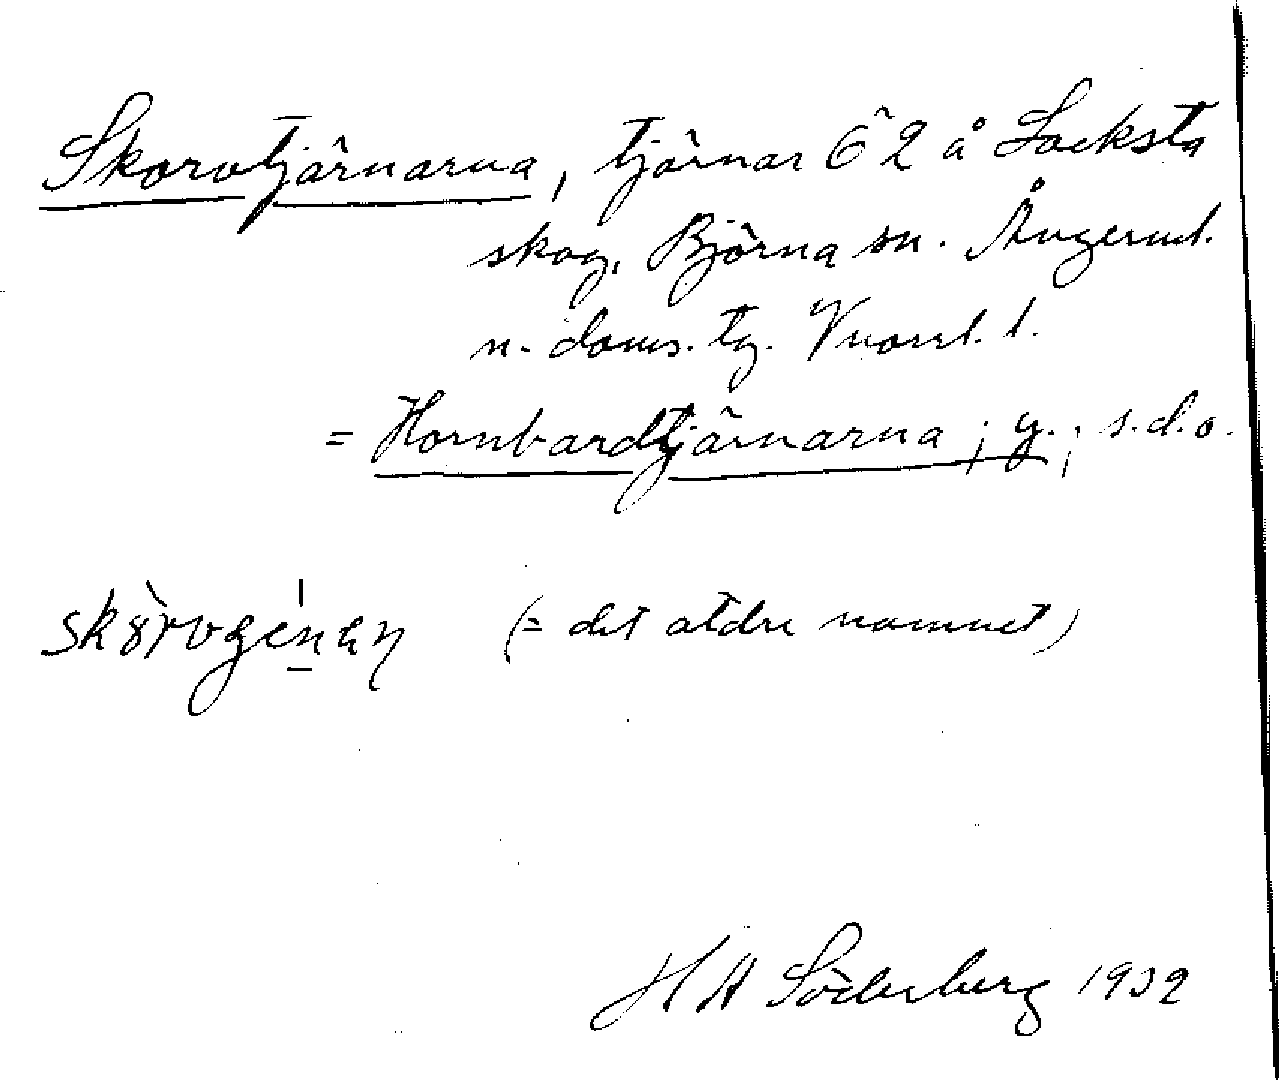 Skorvtjärnarna, tjärnar 6^2 å Locksta
skog, Björna sn. Ångerml.
n. doms. tg. Vnorrl. l.
= Hornbardtjärnarna, y.; s.d.o.
(= det äldre namnet)
H A Söderberg 1932